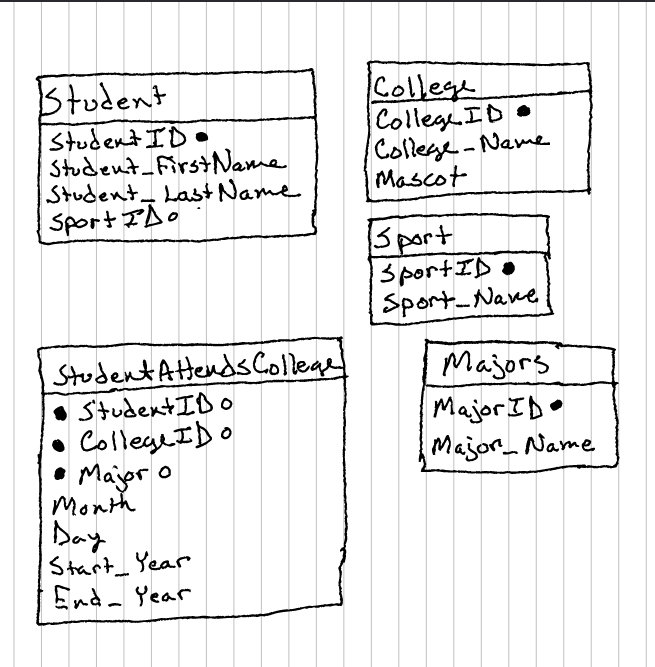 Student
StudentID
Student_FirstName
Student_LastName
SportID
College
CollegeID
College_Name
Mascot
Sport
SportID
Sport_Name
StudentAttendsCollege
StudentID
CollegeID
Major
Month
Day
Start_Year
End_Year
Majors
MajorID
Major_Name